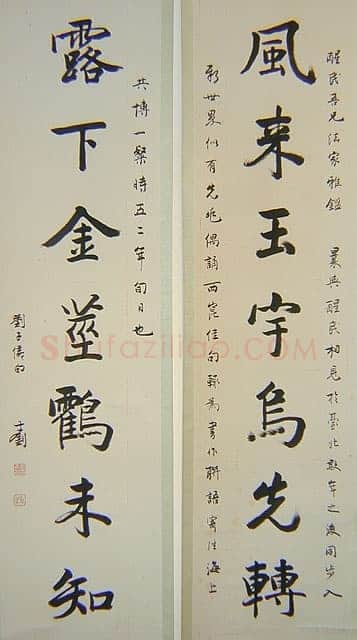 醒民尊兄法家雅鑑 曩與醒民相見於臺北數年之後同步入
風来玉宇烏先轉
新世界似有先兆偶誦西崑佳句輒為書作聯語寄往海上
共博一粲時五二年旬日也
露下金莖鸖未知
劉子
Shufaziliao.COM